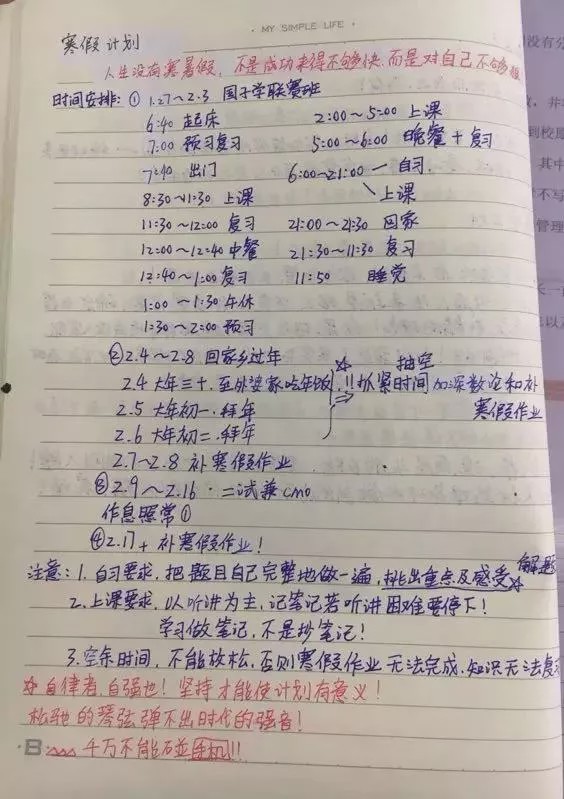 · MY SIMPLE LIFE ·
寒假计划
人生没有寒暑假，不是成功来得不够快，而是对自己不够狠
时间安排：① 1.27～2.3 国子学联赛班
6:40 起床
2:00～5:00 上课
7:00 预习复习
5:00～6:00 晚餐＋复习
7:40 出门
6:00～21:00 — 自习
上课
8:30～11:30 上课
11:30～12:00 复习
21:00～21:30 回家
12:00～12:40 中餐
21:30～11:30 复习
12:40～1:00 复习
11:50 睡觉
1:00～1:30 午休
1:30～2:00 预习
② 2.4～2.8 回家乡过年
2.4 大年三十，至外婆家吃年饭
☆ 抽空
!! 抓紧时间加深数论和补
寒假作业
2.5 大年初一，拜年
2.6 大年初二，拜年
2.7～2.8 补寒假作业
③ 2.9～2.16 · 二试兼CMO
作息照常①
④ 2.17＋ 补寒假作业！
注意：1. 自习要求，把题目自己完整地做一遍，挑出重点及感受☆解题
2. 上课要求，以听讲为主，记笔记若听讲困难要停下！
学习做笔记，不是抄笔记！
3. 空余时间，不能放松，否则寒假作业无法完成，知识无法复习
☆自律者，自强也！坚持才能使计划有意义！
松弛的琴弦弹不出时代的强音！
千万不能碰手机!!